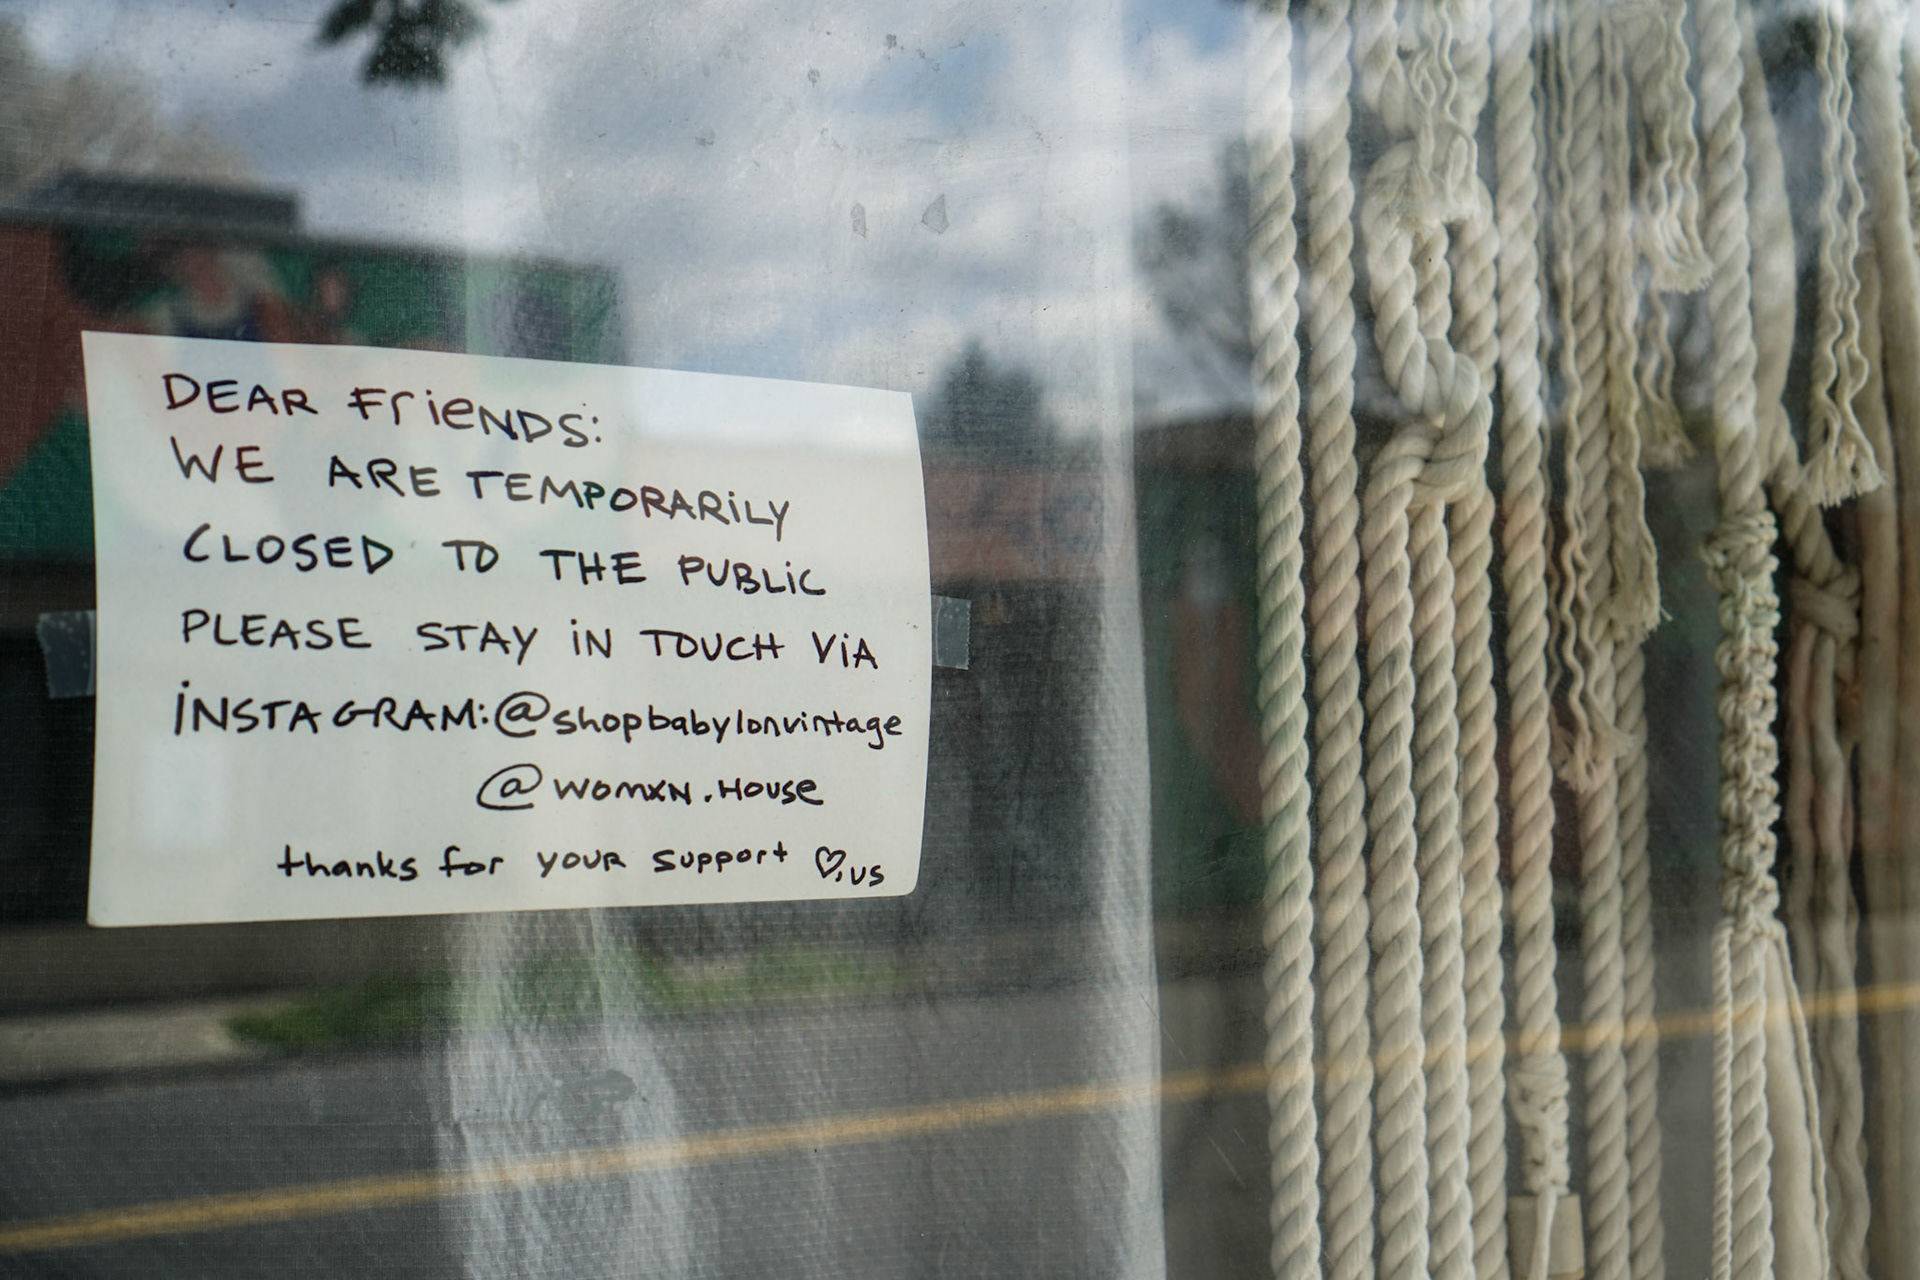 DEAR FriENDS:
WE ARE TEMPORARiLY
CLOSED TO THE PUBLiC
PLEASE STAY iN TOUCH ViA
iNSTAGRAM:@shopbabylonvintage
@WOMXN.HOUSE
thanks for YOUR support ♡, US